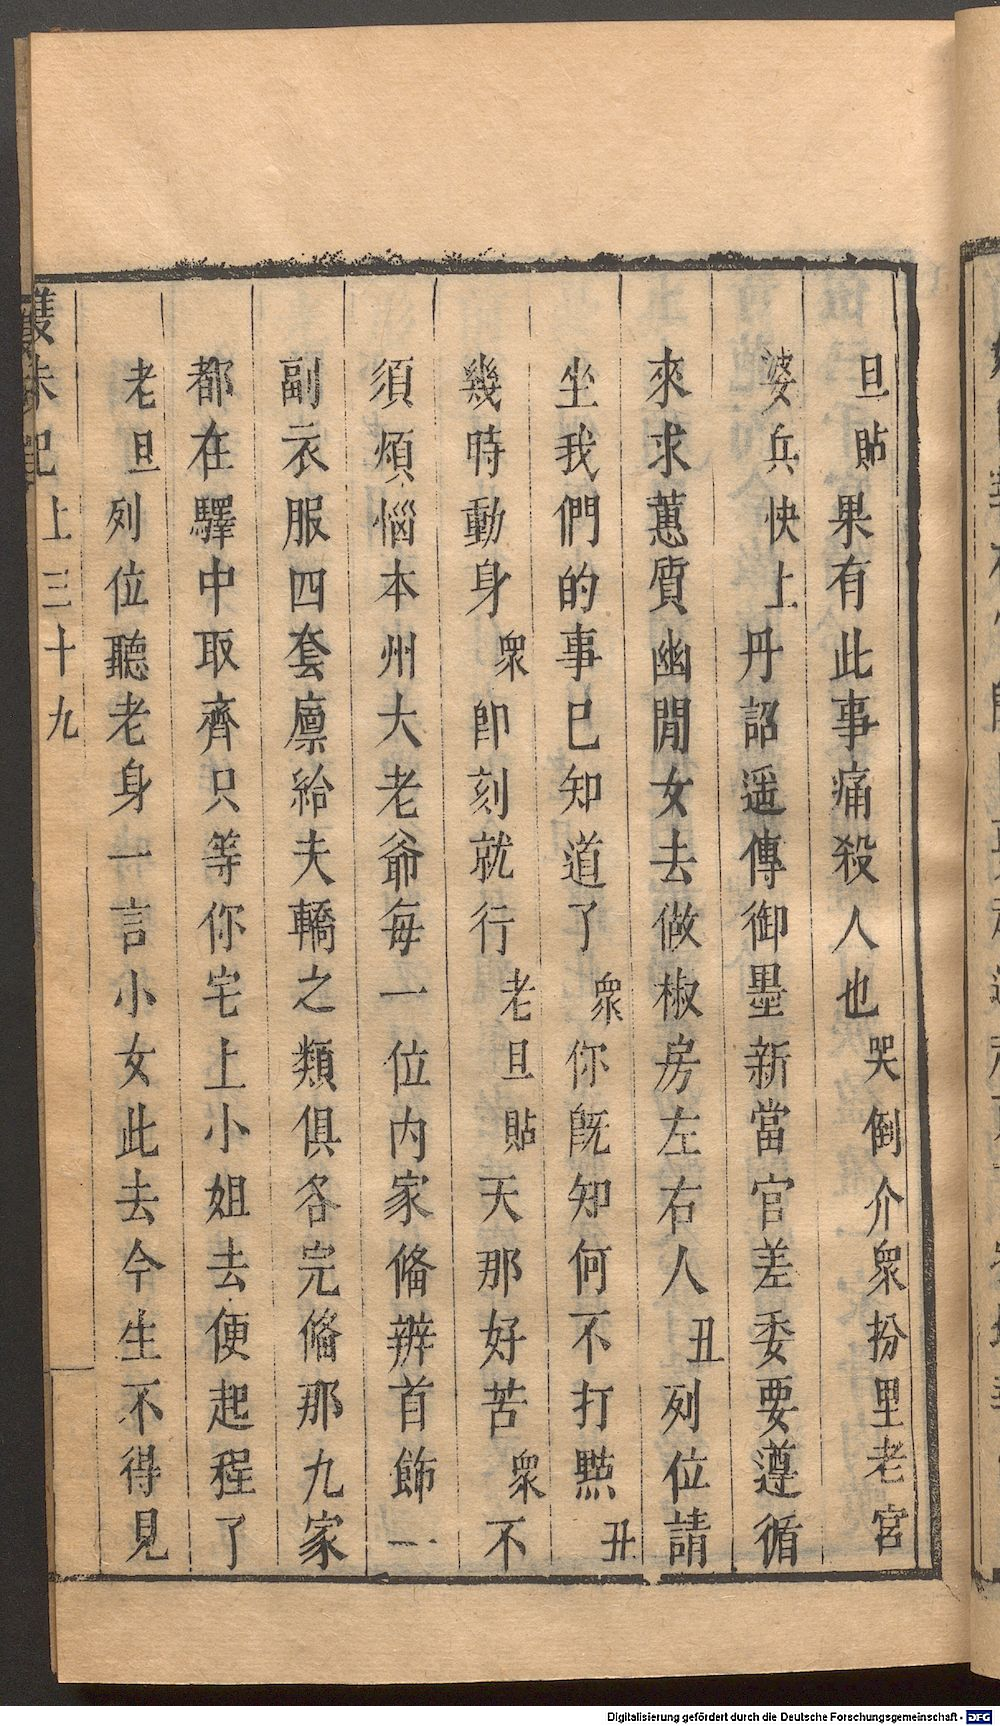 旦貼果有此事痛殺人也哭倒介衆扮里老宮
婆兵快上丹詔遥傳御墨新當官差委要遵循
來求蕙質幽閒女去做椒房左右人丑列位請
坐我們的事已知道了衆你旣知何不打㸃丑
幾時動身衆卽刻就行老旦貼天那好苦衆不
須煩惱本州大老爺每一位內家俻辦首飾一
副衣服四套廪給夫轎之類俱各完俻那九家
都在驛中取齊只等你宅上小姐去便起程了
老旦列位聽老身一言小女此去今生不得見
雙珠記上三十九
Digitalisierung gefördert durch die Deutsche Forschungsgemeinschaft - DFG